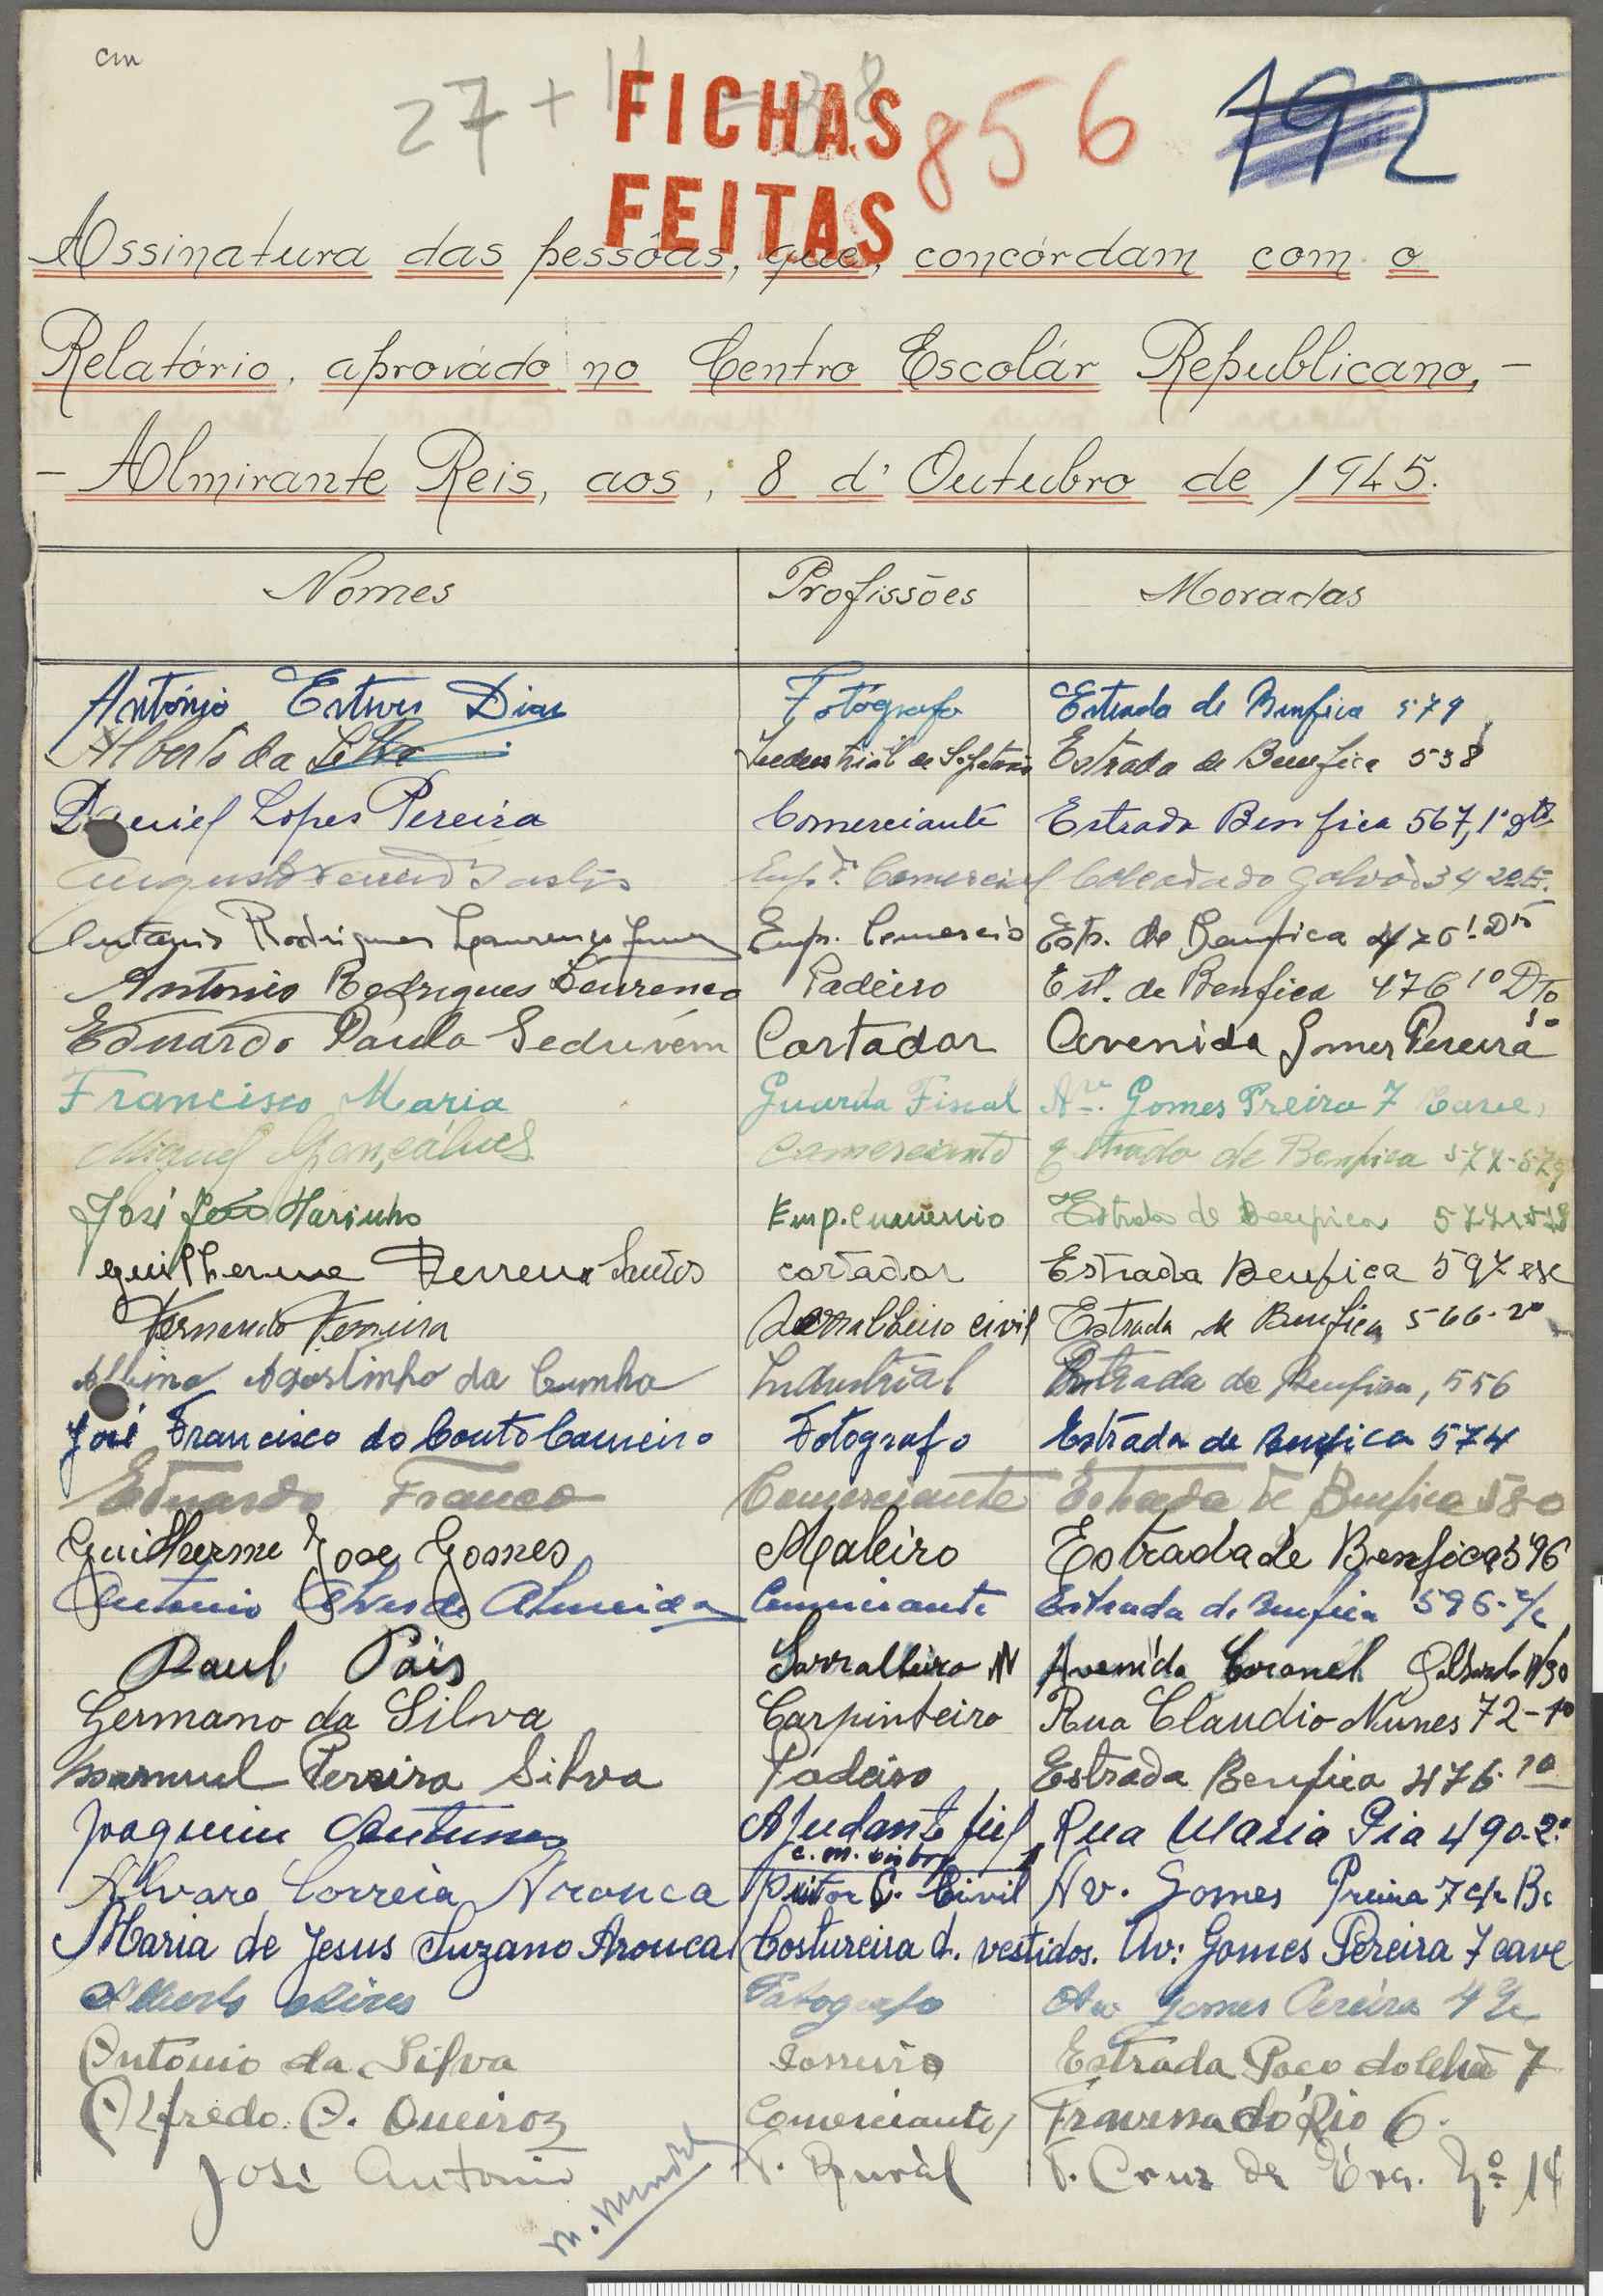 cm
27 + 11 = 38
FICHAS
FEITAS
856
192
Assinatura das pessôas, que, concórdam com o
Relatório, aprovádo no Centro Escolár Republicano, -
- Almirante Reis, aos, 8 d' Outubro de 1945.
Nomes Profissões Moradas
António Esteves Dias Fotógrafo Estrada de Benfica 579
Alberto da Silva Industrial de Estrada de Benfica 538
Daniel Lopes Pereira Comerciante Estrada Benfica 567, 1º Dtº
Augusto Comercial Calçada do Galvão 34
Antonio Rodrigues Lourenço Junior Emp. Comercio Est. de Benfica 476 1º Dto
Antonio Rodrigues Lourenco Padeiro Est. de Benfica 476 1º Dto
Eduardo Paula Seduvém Cortador Avenida Gomes Pereira
Francisco Maria Guarda Fiscal Av. Gomes Preira 7 Cave
Miguel Gonçálves Comerciante Estrada de Benfica
José João Marinho Emp. Comercio Estrada de Benfica
Guilherme Ferreira Santos cortador Estrada Benfica 597 esc
Fernando Ferreira Serralheiro civil Estrada de Benfica 566-2º
Albino Agostinho da Cunha Industrial Estrada de Benfica, 556
José Francisco do Couto Carneiro Fotografo Estrada de Benfica 574
Eduardo Franco Comerciante Estrada de Benfica 580
Guilherme Jose Gomes Maleiro Estrada de Benfica 596
Antonio Alves de Almeida Comerciante Estrada de Benfica 596-r/c
Raul Páis Serralheiro Avenida Coronel Galhardo
Germano da Silva Carpinteiro Rua Claudio Nunes 72-1º
Manuel Pereira Silva Padeiro Estrada Benfica 476 1º
Joaquim Antunes Ajudante fiel Rua Maria Pia 490-2º
C. M. Lisboa
Alvaro Correia Arouca Pintor C. Civil Av. Gomes Preira 7
Maria de Jesus Suzano Arouca Costureira d. vestidos. Av: Gomes Pereira 7 cave
Alberto Fotografo Av Gomes Pereira 4
Antonio da Silva Estrada Poço do Chão 7
Alfredo A. Queiroz Comerciante Travessa do Rio 6.
José Antonio T. Rurál T. Cruz da Era. Nº 14